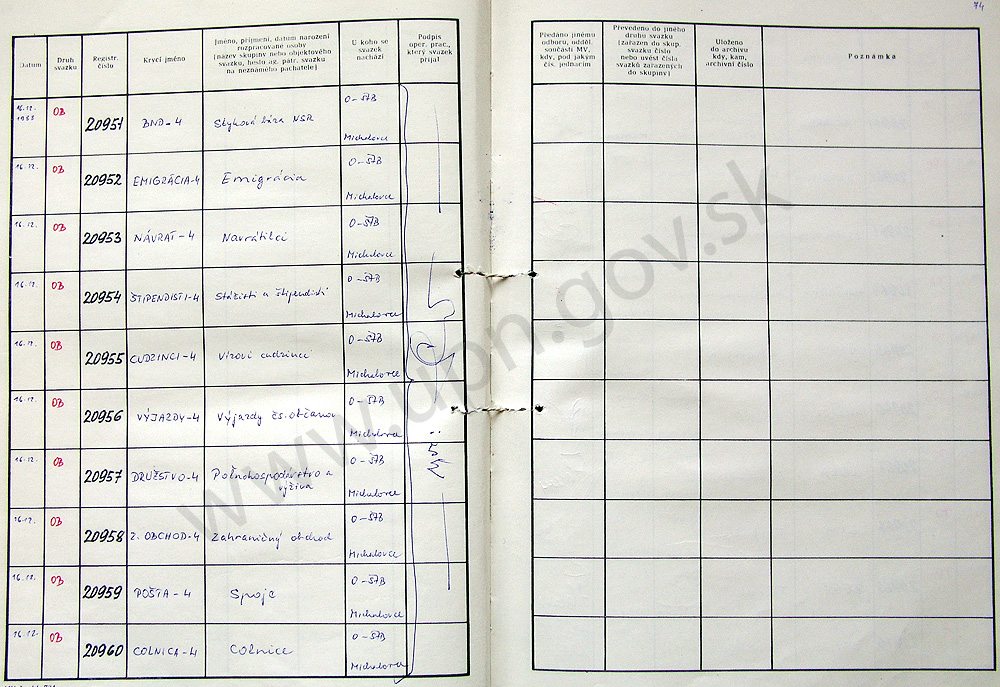 74
Datum
Druh svazku
Registr. číslo
Krycí jméno
Jméno, příjmení, datum narození
rozpracované osoby
[název skupiny nebo objektového
svazku, heslo ag. pátr. svazku
na neznámého pachatele]
U koho se
svazek
nachází
Podpis
oper. prac.,
který svazek
přijal
Předáno jinému
odboru, odděl.
součásti MV,
kdy, pod jakým
čís. jednacím
Převedeno do jiného
druhu svazku
[zařazen do skup.
svazku číslo
nebo uvést čísla
svazků zařazených
do skupiny]
Uloženo
do archivu
kdy, kam,
archivní číslo
Poznámka
16.12. 1988 OB 20951 BND-4 Styková báza NSR O-ŠTB
Michalovce
16.12. OB 20952 EMIGRÁCIA-4 Emigrácia O-ŠTB
Michalovce
16.12. OB 20953 NÁVRAT-4 Navrátilci O-ŠTB
Michalovce
16.12. OB 20954 ŠTIPENDISTI-4 Stážisti a štipendisti O-ŠTB
Michalovce
16.12. OB 20955 CUDZINCI-4 Vízoví cudzinci O-ŠTB
Michalovce
16.12. OB 20956 VÝJAZDY-4 Výjazdy čs. občanov O-ŠTB
Michalovce
16.12. OB 20957 DRUŽSTVO-4 Poľnohospodárstvo a O-ŠTB
výživa Michalovce
16.12. OB 20958 Z. OBCHOD-4 Zahraničný obchod O-ŠTB
Michalovce
16.12. OB 20959 POŠTA-4 Spoje O-ŠTB
Michalovce
16.12. OB 20960 COLNICA-4 Colnice O-ŠTB
Michalovce
www.upn.gov.sk